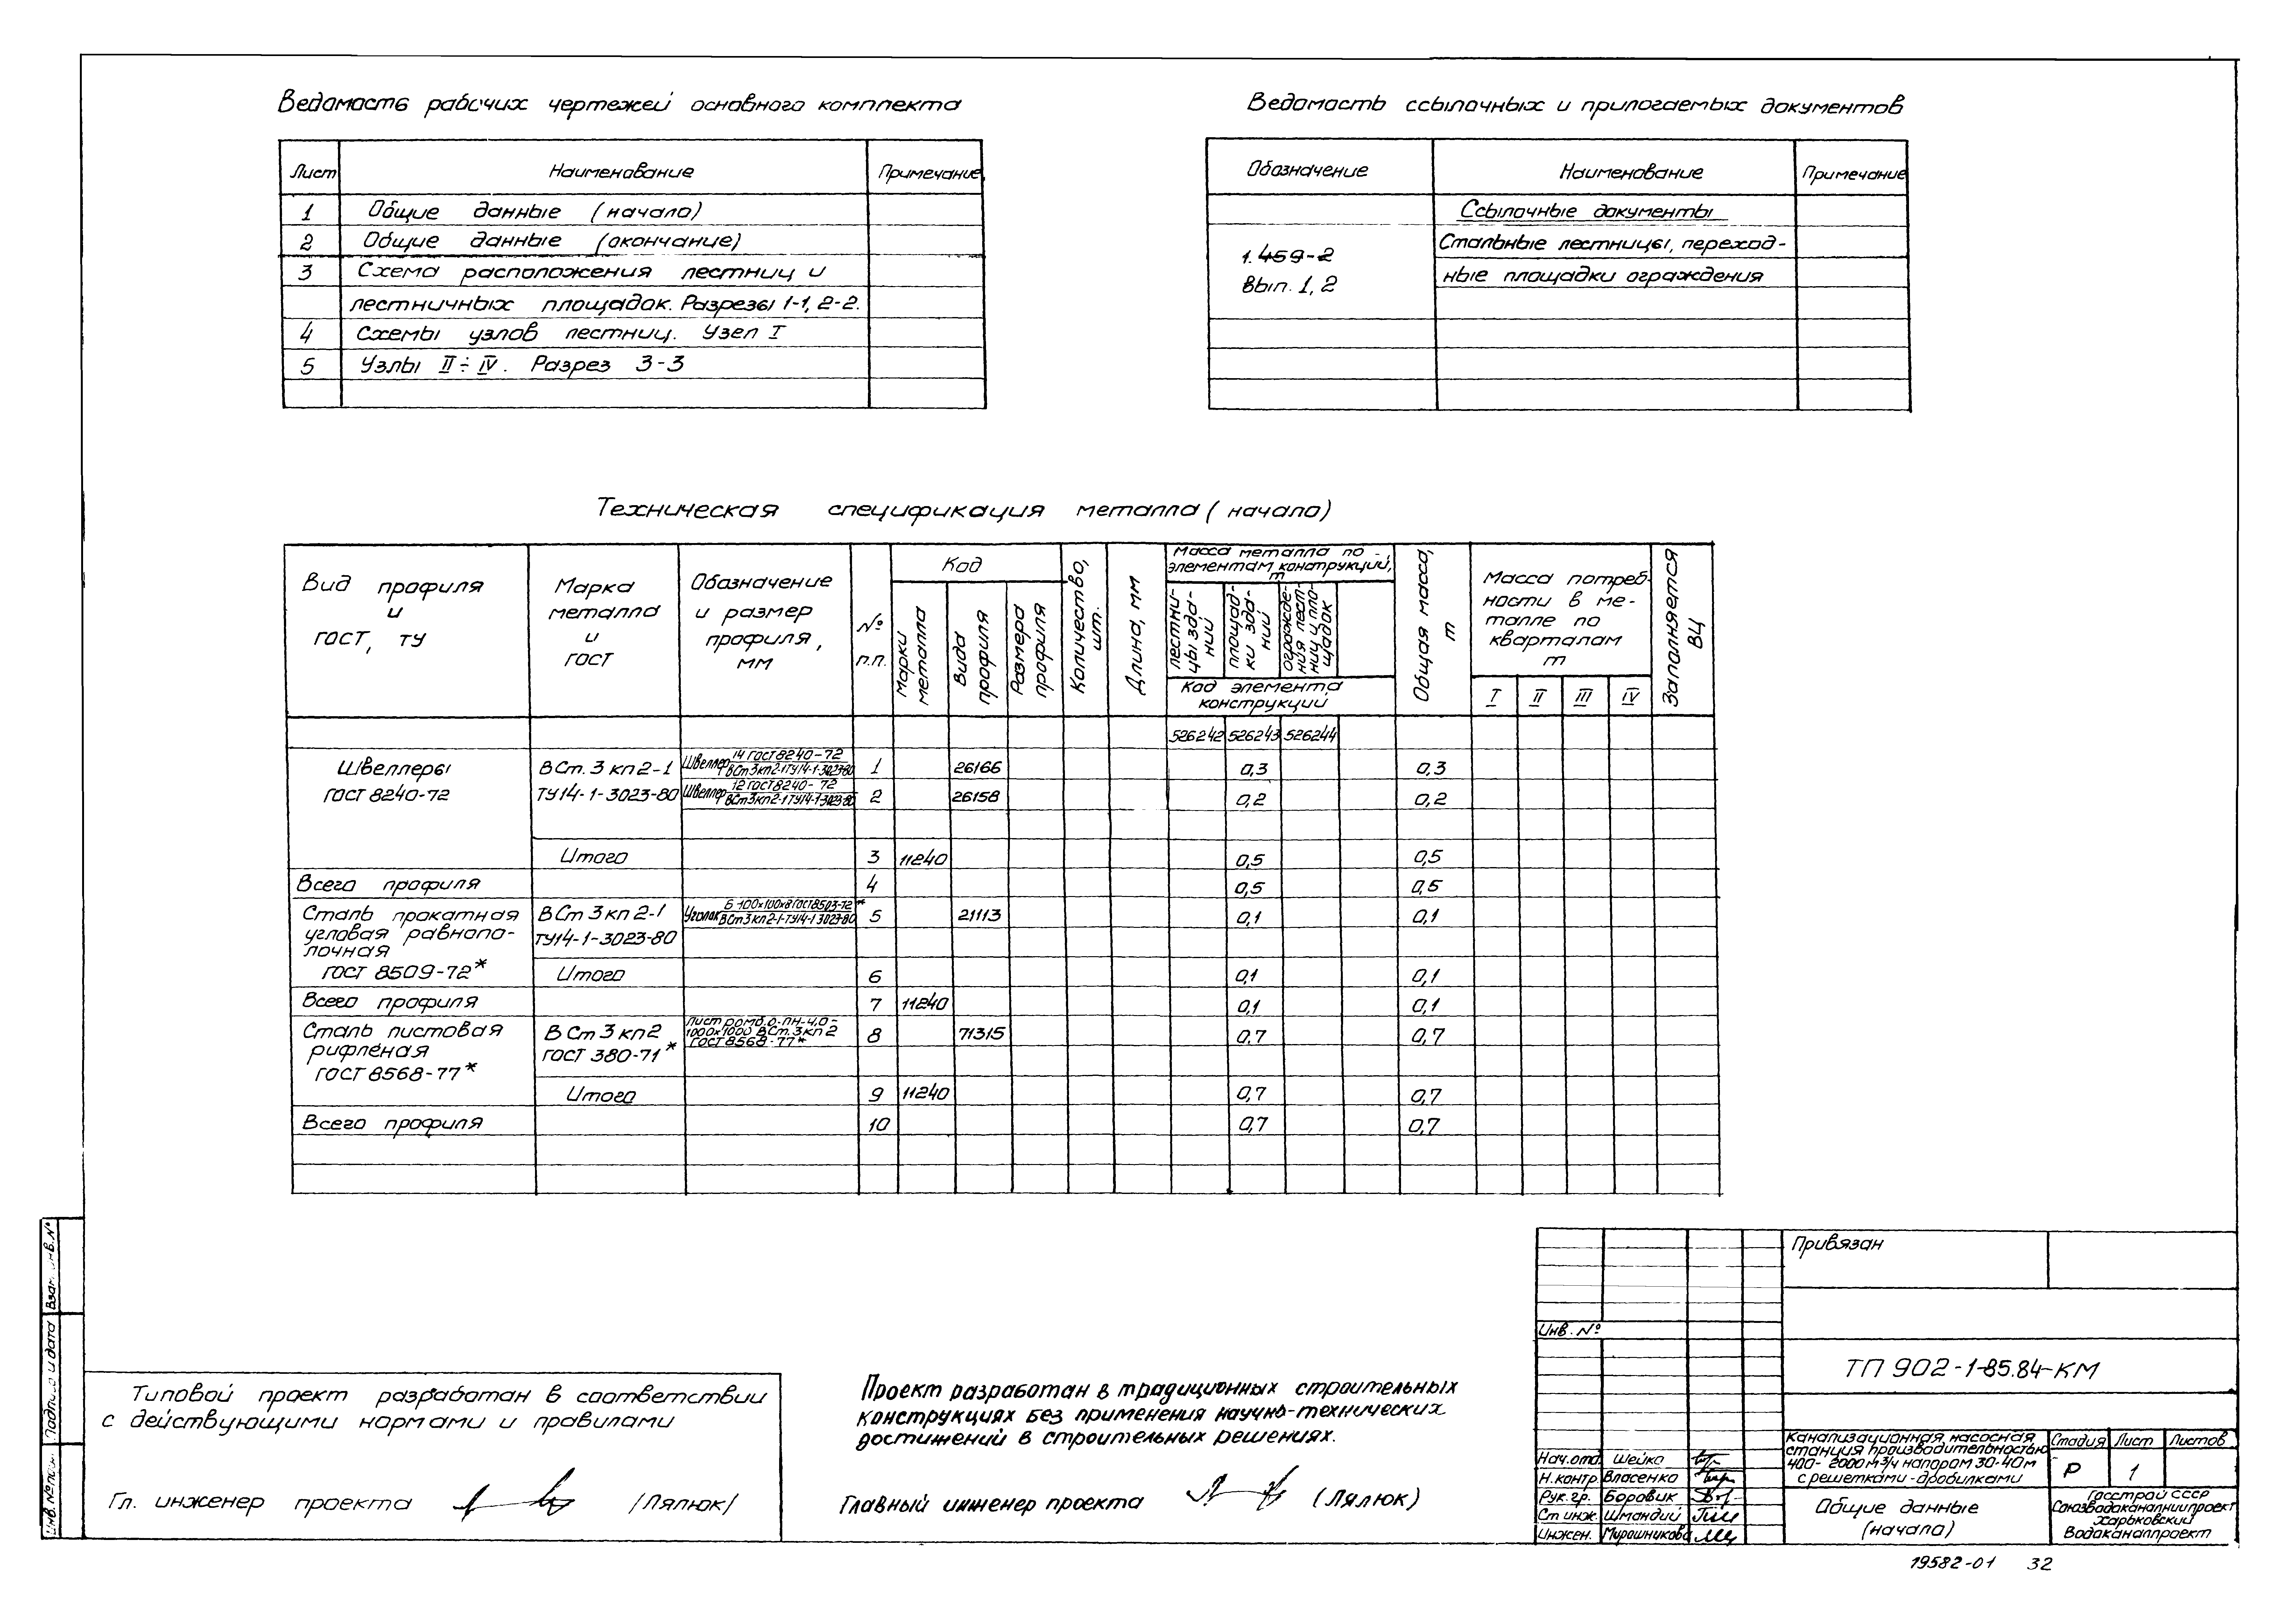 Ведомость рабочих чертежей основного комплекта
Лист Наименование Примечание
1 Общие данные (начало)
2 Общие данные (окончание)
3 Схема расположения лестниц и
лестничных площадок. Разрезы 1-1, 2-2.
4 Схемы узлов лестниц. Узел I
5 Узлы II÷IV. Разрез 3-3
Ведомость ссылочных и прилогаемых документов
Обозначение Наименование Примечание
Ссылочные документы
1.459-2 Стальные лестницы, переход-
Вып. 1, 2 ные площадки ограждения
Техническая спецификация металла (начало)
Вид профиля и ГОСТ, ТУ
Марка металла и ГОСТ
Обозначение и размер профиля, мм
№ п.п.
Код
Марки металла
Вида профиля
Размера профиля
Количество, шт.
Длина, мм
Масса металла по элементам конструкций, т
лестни-цы зда-ний
площад-ки зда-ний
огражде-ния лест-ниц и пло-щадок
Код элемента конструкций
Общая масса, т
Масса потреб-ности в ме-талле по кварталам т
I II III IV
Заполняется ВЦ
526242 526243 526244
Швеллеры ВСт.3кп2-1 Швеллер 14 ГОСТ 8240-72 ВСт3кп2-1ТУ14-1-3023-80 1 26166 0,3 0,3
ГОСТ 8240-72 ТУ14-1-3023-80 Швеллер 12 ГОСТ 8240-72 ВСт3кп2-1ТУ14-1-3023-80 2 26158 0,2 0,2
Итого 3 11240 0,5 0,5
Всего профиля 4 0,5 0,5
Сталь прокатная ВСт3кп2-1 Уголок Б-100х100х8 ГОСТ 8503-72* ВСт3кп2-1-ТУ14-1 3023-80 5 21113 0,1 0,1
угловая равнопо- ТУ14-1-3023-80
лочная
ГОСТ 8509-72* Итого 6 0,1 0,1
Всего профиля 7 11240 0,1 0,1
Сталь листовая ВСт3кп2 Лист ромб.0-ПН-4,0-1000х1000 ВСт.3кп2 ГОСТ 8568-77* 8 71315 0,7 0,7
рифленая ГОСТ 380-71*
ГОСТ 8568-77*
Итого 9 11240 0,7 0,7
Всего профиля 10 0,7 0,7
Взам. инв. №
Подпись и дата
Инв. № подл.
Типовой проект разработан в соответствии
с действующими нормами и правилами
Гл. инженер проекта /Лялюк/
Проект разработан в традиционных строительных
конструкциях без применения научно-технических
достижений в строительных решениях.
Главный инженер проекта (Лялюк)
Привязан
Инв. №
ТП 902-1-85.84-КМ
Нач.отд. Шейко
Н.контр. Власенко
Рук.гр. Боровик
Ст инж. Шмандий
Инжен. Мирошникова
Канализационная насосная
станция производительностью
400-2000 м³/ч напором 30-40м
с решетками-дробилками
Стадия Лист Листов
Р 1
Общие данные
(начало)
Госстрой СССР
Союзводоканалниипроект
Харьковский
Водоканалпроект
19582-01 32